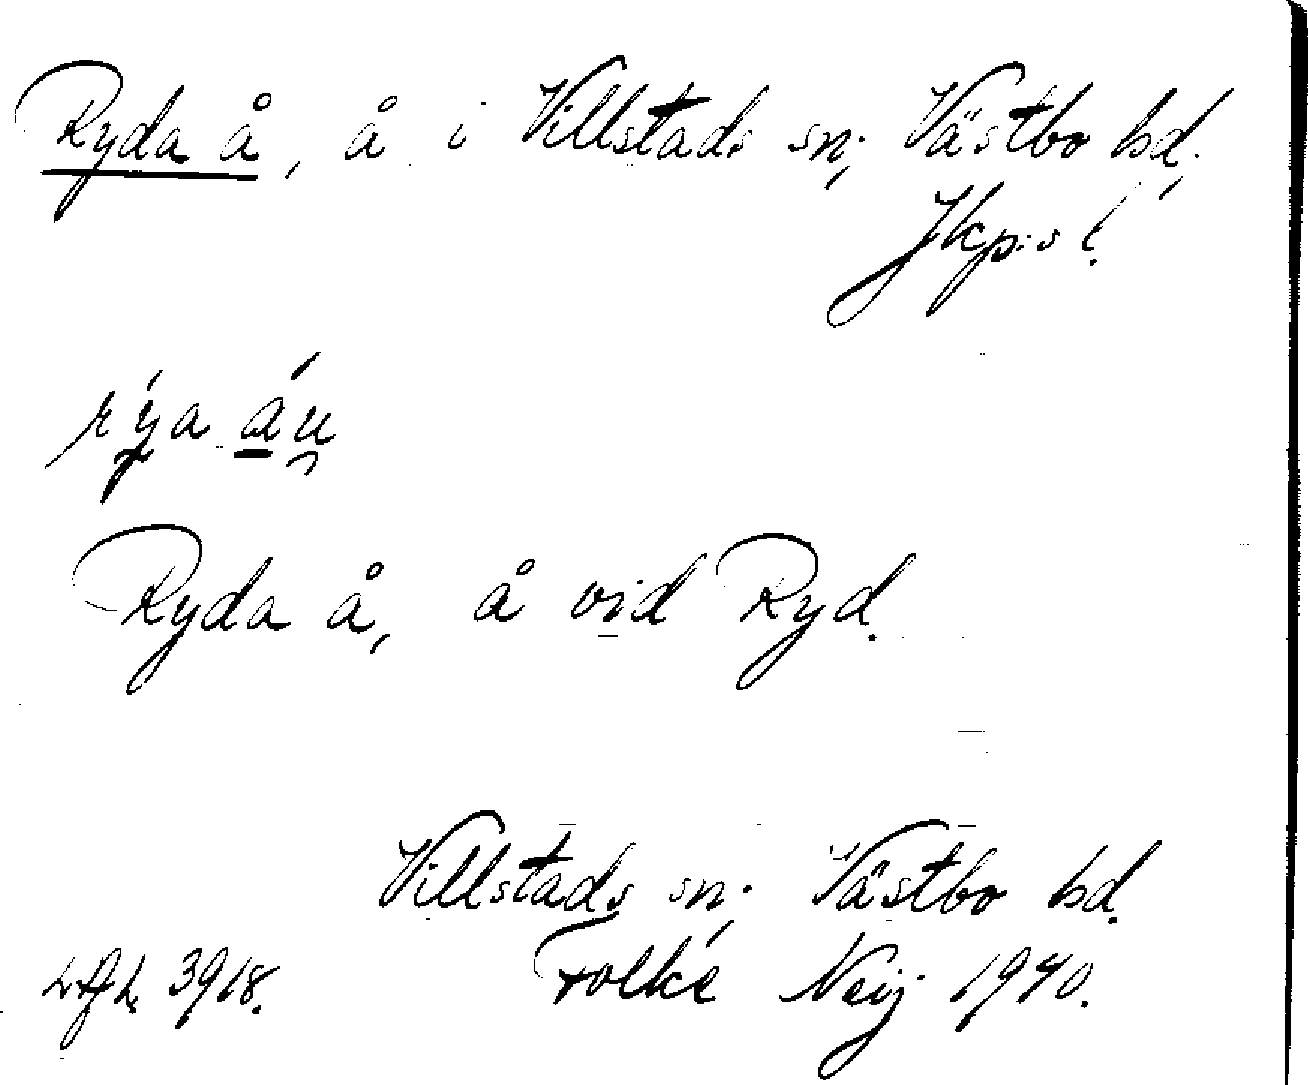 Ryda å, å i Villstads sn; Västbo hd.
Jkp:s l.
rýa áu
Ryda å, å vid Ryd.
Villstads sn; Västbo hd.
3918. Folke Neij 1940.